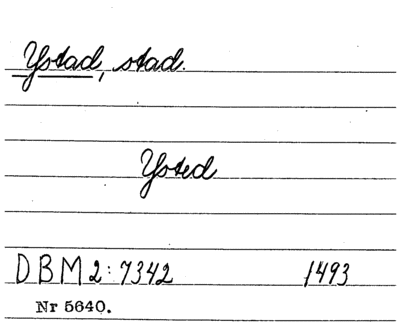 Ystad, stad.
Ysted
DBM 2:7342 1493
Nr 5640.